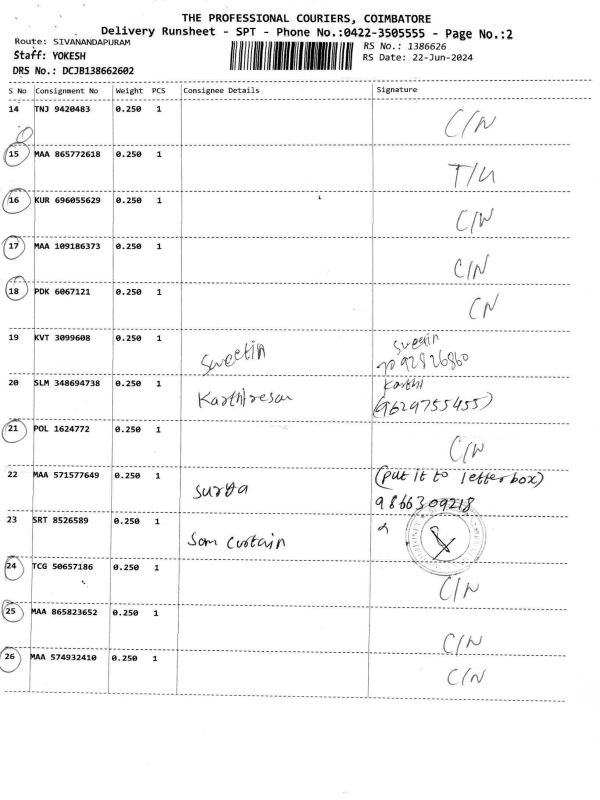 THE PROFESSIONAL COURIERS, COIMBATORE
Delivery Runsheet - SPT - Phone No.:0422-3505555 - Page No.:2
Route: SIVANANDAPURAM RS No.: 1386626
Staff: YOKESH RS Date: 22-Jun-2024
DRS No.: DCJB138662602
S No Consignment No Weight PCS Consignee Details Signature
14 TNJ 9420483 0.250 1 C/N
15 MAA 865772618 0.250 1 T/U
16 KUR 696055629 0.250 1 C/N
17 MAA 109186373 0.250 1 C/N
18 PDK 6067121 0.250 1 CN
19 KVT 3099608 0.250 1 Sweetin Sweetin
7092826860
20 SLM 348694738 0.250 1 Karthiresan Karthi
(9629755455)
21 POL 1624772 0.250 1 C/N
22 MAA 571577649 0.250 1 Surya (put it to letter box)
9866309218
23 SRT 8526589 0.250 1 Som curtain
24 TCG 50657186 0.250 1 C/N
25 MAA 865823652 0.250 1 C/N
26 MAA 574932410 0.250 1 C/N